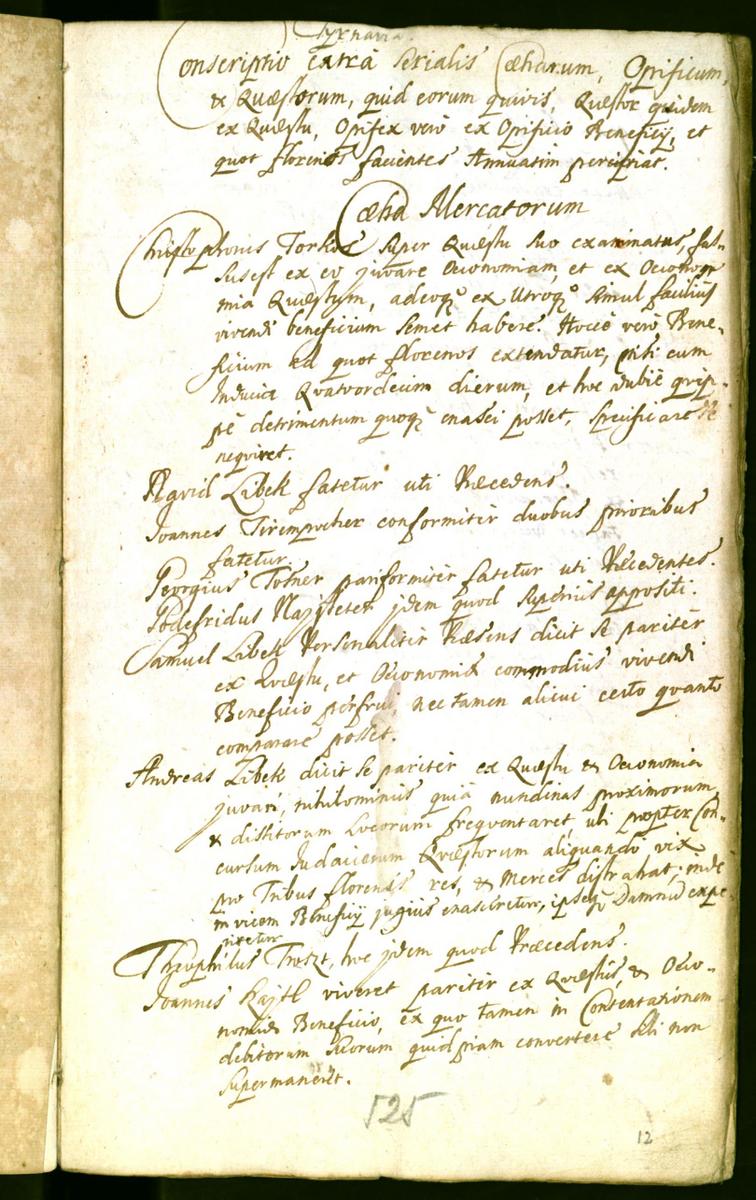 Tyrnavia.
Conscriptio extra Serialis Cæharum, Opificum,
& Quæstorum, quid eorum quivis, Quæstor quidem
ex Quæstu, Opifex verò ex Opificio Beneficij, et
quot florenos facientes Annuatim percipiat.
Cæha Mercatorum
Christophorus Torkos super Quæstu suo examinatus, fas-
sus est ex eo juvare Oeconomiam, et ex Oecono-
mia Quæstum, adeoq; ex Utroq; simul facilius
vivendi beneficium semet habere. Hocce verò Bene-
ficium ad quot florenos extendatur, nisi cum
Inducia Quatuordecim dierum, et hoc dubiè quip-
pe detrimentum quoq; enasci posset, specificare
nequiret.
Agvid Libek fatetur uti Præcedens.
Joannes Tirempocher conformiter duobus prioribus
fatetur
Georgius Tosner pariformiter fatetur uti Præcedentes.
Godefridus Najsteter jdem quod superius appositi.
Samuel Libek Personaliter Præsens dicit se pariter
ex Quæstu, et Oeconomiæ commodius vivendi
Beneficio perfrui, nec tamen alicui certo quanto
comparare posset.
Andreas Libek dicit se pariter ex Quæstu & Oeconomia
juvari, nihilominus quia nundinas proximorum,
& distitorum Locorum frequentaret, ubi propter Con-
cursum Judaicorum Quæstorum aliquando vix
pro Tribus florenis res, & Merces distrahat; inde
in vicem Beneficij jugius enasceretur, ipseq; Damnum expe-
riretur
Theophilus Troszt, hoc jdem quod Præcedens.
Joannes Rajtl viveret pariter ex Quæstus, & Oeco-
nomiæ Beneficio, ex quo tamen in Contentationem
debitorum suorum quidpiam convertere sibi non
supermaneret.
525
12